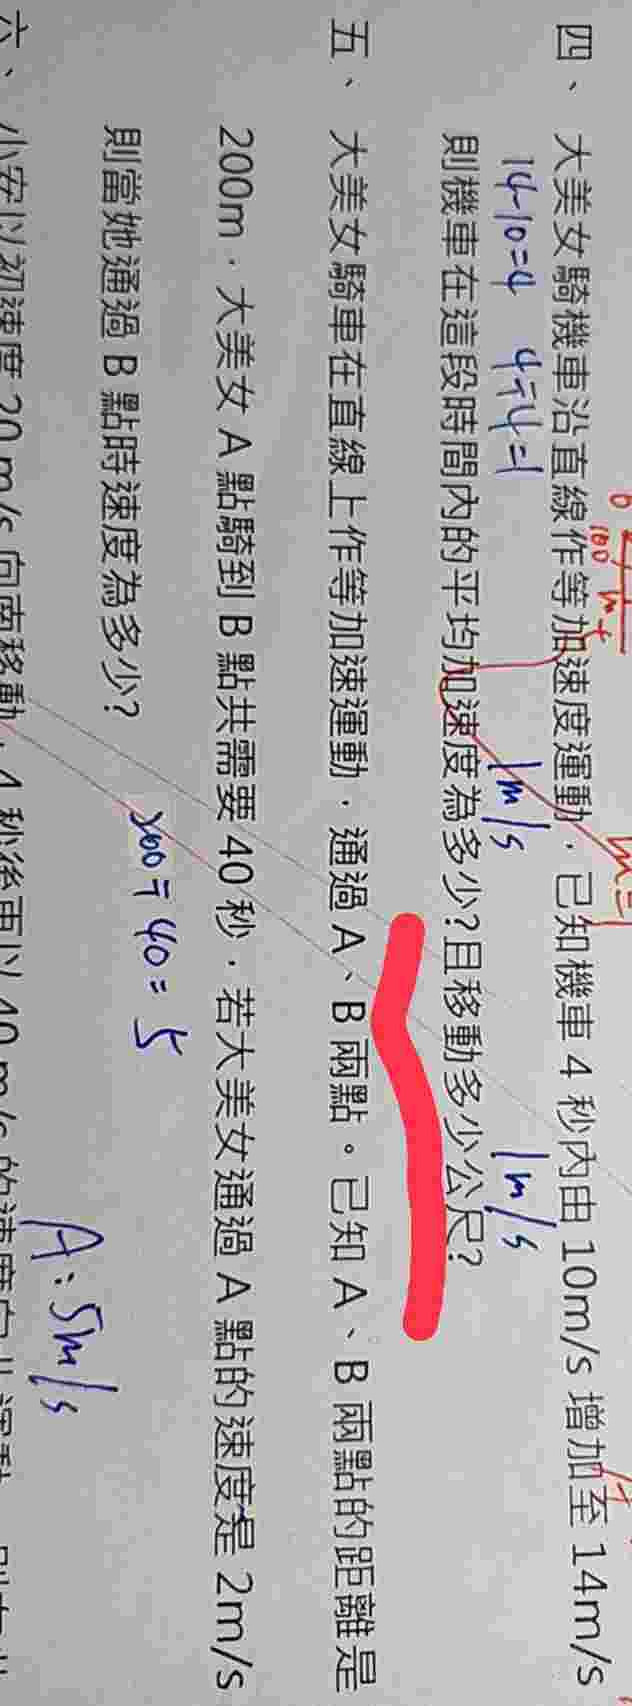 四、 大美女騎機車沿直線作等加速度運動，已知機車 4 秒內由 10m/s 增加至 14m/s
14-10=4 4÷4=1 1m/s 1m/s
則機車在這段時間內的平均加速度為多少?且移動多少公尺?
五、 大美女騎車在直線上作等加速運動，通過 A、B 兩點。已知 A、B 兩點的距離是
200m，大美女 A 點騎到 B 點共需要 40 秒，若大美女通過 A 點的速度是 2m/s
則當她通過 B 點時速度為多少?
200÷40=5
A:5m/s
六、 小安以初速度 20 m/s 向南移動，4 秒後再以 40 m/s 的速度向北運動